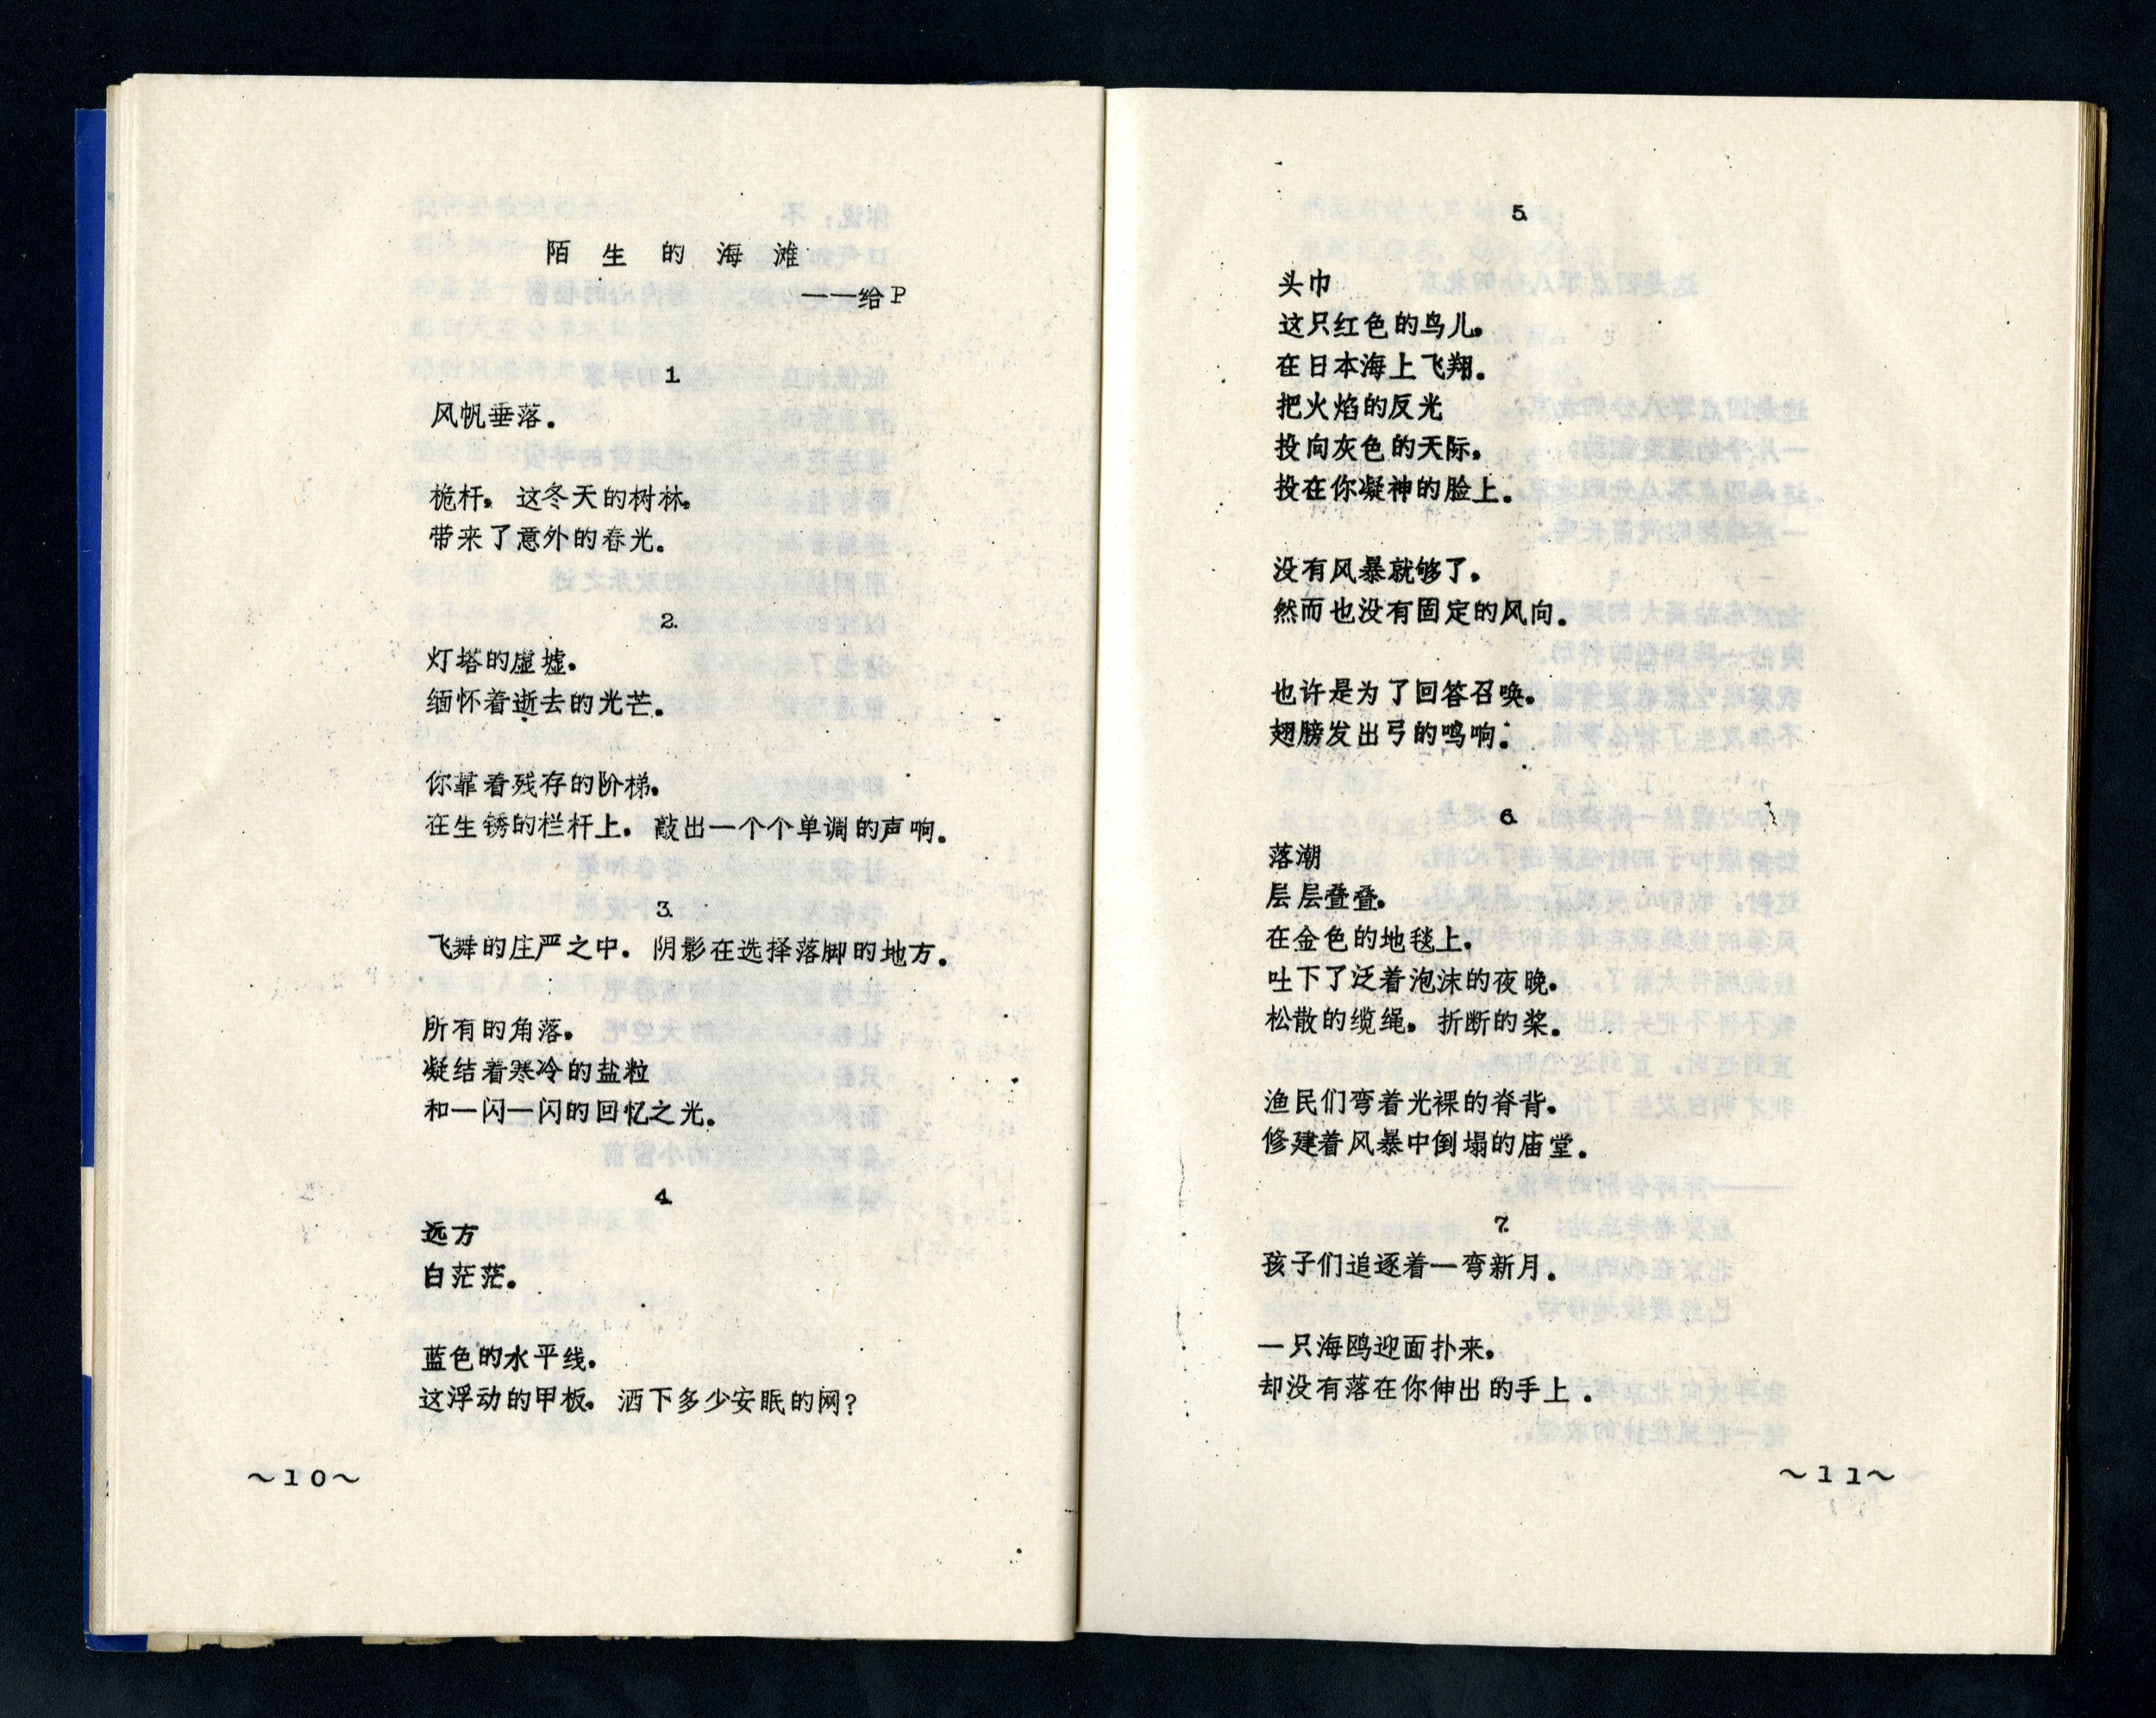 陌生的海滩
——给P
1
风帆垂落。
桅杆，这冬天的树林，
带来了意外的春光。
2.
灯塔的虚墟，
缅怀着逝去的光芒。
你靠着残存的阶梯，
在生锈的栏杆上，敲出一个个单调的声响。
3.
飞舞的庄严之中，阴影在选择落脚的地方。
所有的角落，
凝结着寒冷的盐粒
和一闪一闪的回忆之光。
4.
远方
白茫茫。
蓝色的水平线，
这浮动的甲板，洒下多少安眠的网？
~10~
5.
头巾
这只红色的鸟儿，
在日本海上飞翔。
把火焰的反光
投向灰色的天际，
投在你凝神的脸上。
没有风暴就够了，
然而也没有固定的风向。
也许是为了回答召唤，
翅膀发出弓的鸣响。
6.
落潮
层层叠叠，
在金色的地毯上，
吐下了泛着泡沫的夜晚，
松散的缆绳，折断的桨。
渔民们弯着光裸的脊背，
修建着风暴中倒塌的庙堂。
7.
孩子们追逐着一弯新月。
一只海鸥迎面扑来，
却没有落在你伸出的手上。
~11~